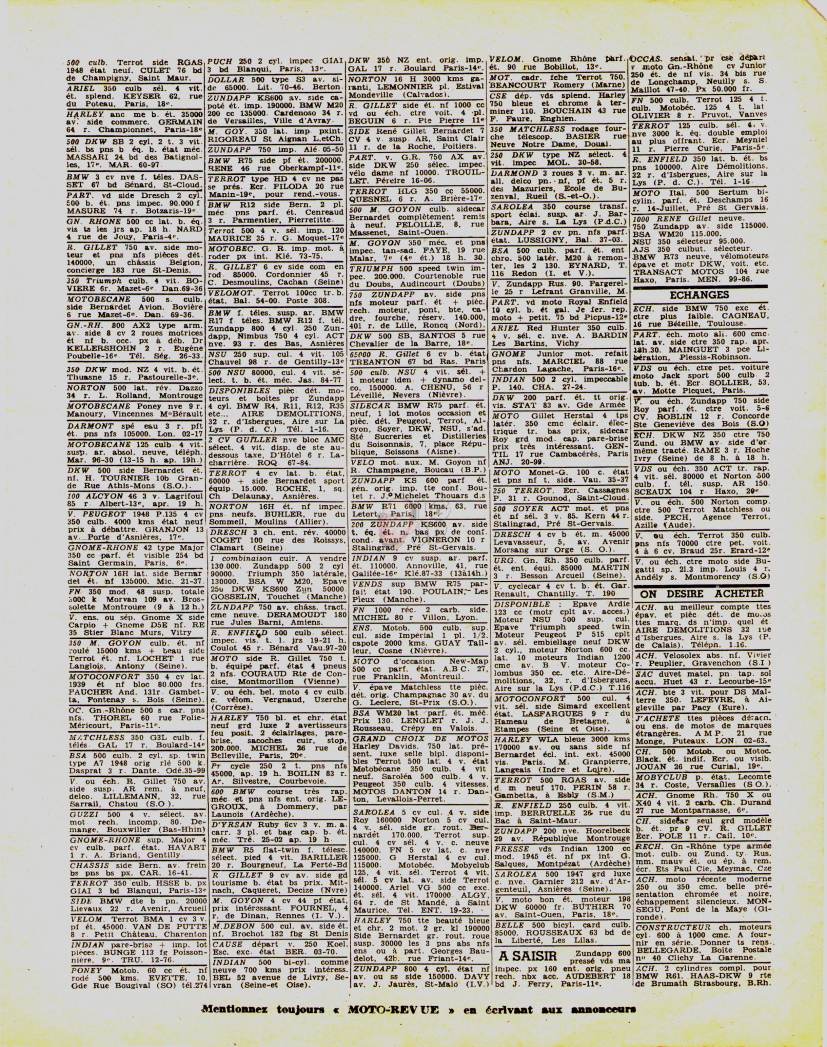 500 culb. Terrot side RGAS
1948 état neuf. CULET 76 bd
de Champigny, Saint Maur.
ARIEL 350 culb sél. 4 vit.
ét. splend. KEYSER 62, rue
du Poteau, Paris, 18e.
HARLEY anc me b. ét. 35000
av. side commerc. GERMAIN
64 r. Championnet, Paris-18e
500 DKW SB 2 cyl. 2 t. 3 vit
sél. bs pns b éq. b. état méc.
MASSARI 24 bd des Batignol-
les, 17e. MAR. 60-97
BMW 3 cv nve f. téles. DAS-
SET 67 bd Sénard, St-Cloud.
PART. vd side Dresch 2 cyl.
500 b. ét. pns impec. 90.000
MASURE 74 r. Botzaris-19e.
GN. RHONE 500 cc lat. b. éq.
vis ts les jrs ap. 18 h. NARD
4 rue de Jouy, Paris-4e.
R. GILLET 750 av. side mo-
teur et pns nfs pièces dét.
140000, un châssis Belgion,
concierge 183 rue St-Denis.
350 Triumph culb. 4 vit. BO-
VIERE 6r. Mazet-6e Dan.69-36
MOTOBECANE 500 s. culb.
side Bernardet Avion. Bovière
6 rue Mazet-6e. Dan. 69-36.
GN.-RH. 800 AX2 type arm.
av. side 8 cv 2 roues motrices
ét nf b. occ. px à déb. Dr
KELLERSHOEN 2 r Eugène
Poubelle-16e Tél. Ség. 26-33
350 DKW mod. NZ 4 vit. b. ét.
Thuasne 15 r. Pastourelle-3e.
NORTON 500 lat. rev. Dazzo
34 r. L. Rolland, Montrouge
MOTOBECANE Poney nve 9 r.
Manoury, Vincennes Mo-Bérault
DARMONT spé eau 3 r. pft
ét. pns nfs 105000. Lon. 02-17
MOTOBECANE 125 culb 4 vit.
susp. ar. absol. neuve, téléph.
Mar. 96-30 (13-15 h. ap. 19h.)
DKW 500 side Bernardet ét.
nf. H. TOURNIER 10b Gran-
de Rue Athis-Mons (S.O.).
100 ALCYON 46 3 v. Lagrifoul
85 r Albert-13e, apr. 19 h.
V. PEUGEOT 1948 P.135 4 cv
350 culb. 4000 kms état neuf
prix à débattre. GRANJON 13
av. Porte d'Asnières, 17e.
GNOME-RHONE 42 type Major
350 cc parf. ét visible 254 bd
Saint Germain, Paris, 6e.
NORTON 16H lat. side Bernar
det ét. nf 135000. Lec. 21-37.
FN 350 mod. 48 susp. totale
3000 k Morvan 109 av. Bros-
solette Montrouge (9 à 12 h.)
V. ens. ou sép. Gnome X side
Carpio + Gnome DE4 nf. RE
35 Stier Blanc Murs, Vitry
350 M GOYON culb. ét. nf
roulé 15000 kms + beau side
Terrot ét. nf. LOCHET 1 rue
Langlois, Antony (Seine).
MOTOCONFORT 350 4 cv lat.
1939 ét. nf bloc 80.000 frs.
FAUCHER And. 131r. Gambet-
ta, Fontenay s. Bois (Seine).
OC. Gn.-Rhône 500 s car. pns
nfs. THOREL 60 rue Folie-
Méricourt, Paris-11e.
MATCHLESS 350 G3L culb. f.
télés. GAL 17 r. Boulard-14e
BSA 500 culb. 2 cyl. sp. twin
type A7 1948 orig rlé 500 k.
Dasprat 3 r. Dante. Odé.35-99
V. ou éch. R. Gillet 750 av.
side susp. AR rem. à neuf,
delco. LILLEMANN, 32, rue
Sarrail, Chatou (S.O.)
GUZZI 500 4 v. sélect. av.
mot rech. incomp. 80. De-
mange, Bouxwiller (Bas-Rhin)
GNOME-RHONE sup. Major 4
cv culb. parf. état. HAVART
1 r. A. Briand, Gentilly
CHASSIS side Bern. av. frein
bs pns bs px. CAR. 16-41.
TERROT 350 culb. HSSE b. px
GIAI 3 bd Blanqui, Paris-13e
SIDE BMW dte b. pn. 20000
Lievaux 22 r. Avenir, Arcueil
VELOM. Terrot BMA 1 cv 3 v.
pf ét. 45000. VAN DE PUTTE
8 r. Petit Château, Charenton
INDIAN pare-brise + imp. lot
pièces. BUNGE 113 fg Poisson-
nière, 9e. TRU. 12-76.
PONEY Motob. 60 cc ét. nf
rodé 500 kms. EVETTE, 10,
Gde Rue Bougival (SO) tél.274
PUCH 250 2 cyl. impec GIAI
3 bd Blanqui, Paris, 13e.
DOLLAR 500 type S3 av. si-
de 65000. Lit. 70-46. Berton
ZUNDAPP KS600 av. side ca-
poté ét. imp. 190000. BMW M20
200 cc 135000. Cardenoso 34 r.
de Versailles, Ville d'Avray.
M. GOY. 350 lat. imp pxint.
RIGOREAU St Aignan L.etCh
ZUNDAPP 750 imp. Alé 05-50
BMW R75 side pf ét. 200000.
RENE 46 rue Oberkampf-11e.
TERROT type HD 4 cv ne pas
se prés. Ecr. FILODA 20 rue
Manin-19e, pour rend.-vous.
BMW R12 side Bern. 2 pl.
méc pns parf. ét. Cenreaud
3 r. Parmentier, Pierrefitte.
Terrot 500 4 v. sél. imp. 120
MAURICE 35 r. G. Moquet-17e
MOTOBEC. G. R. imp. mot. à
roder px int. Klé. 73-75.
R. GILLET 6 cv side com en
rod 85000. Cordonnier 45 r.
C. Desmoulins, Cachan (Seine)
VELOMOT. Terrot 100cc tr. b.
état. Bal. 54-00. Poste 308.
BMW f. téles. susp. ar. BMW
R17 f. téles BMW R12 f. tél.
Zundapp 800 4 cyl. 250 Zun-
dapp, Nimbus 750 4 cyl. ACT
nve. 93 r. des Bas, Asnières
NSU 250 sup. cul. 4 vit. 105
Chauvel 98 r. de Gentilly-13e
500 NSU 80000, cul. 4 vit. sé-
lect. t. b. ét. méc. Jas. 84-77
DISPONIBLES pièc dét. mo-
teurs et boîtes pr Zundapp
4 cyl. BMW R4, R11, R12, R35
etc... AIRE DEMOLITIONS,
32, r. d'Isbergues, Aire sur La
Lys (P. d. C.) Tél. 1-16.
2 CV GUILLER nve bloc AMC
sélect. 4 vit. disp. de ste au-
dessous taxe, D'Hôtel 6 r. La-
charrière. ROQ 67-84.
TERROT 4 cv lat. b. état,
60000 + side Bernardet sport
équip. 15.000. ROCHE, 1, sq.
Ch Delaunay, Asnières.
NORTON 16H ét. nf impec.
pns neufs. BUHLER, rue du
Sommeil, Moulins (Allier).
DRESCH 3 ch. ent. rév. 40000
OGET 100 rue des Roissys,
Clamart (Seine)
1 combinaison cuir. A vendre
130.000. Zundapp 500 2 cyl
90000. Triumph 350 latérale,
130000. BSA W M20. Epave
250 DKW KS600 Zün 50000
GOSSELIN, Touchet (Manche)
ZUNDAPP 750 av. châss. tract.
orne neuve. DERAMOUDT 180
rue Jules Barni, Amiens.
R. ENFIELD 500 culb sélect.
impec. vis t. l jrs 19-21 h.
Coulot 45 r Bénard Vau.97-20
MOTO side R. Gillet 750 l.
b. équipé parf. état 4 pneus
2 nfs. COURAUD Rte de Con-
cise, Montmorillon (Vienne)
V. ou éch. bel. moto 4 cv culb
c. vélom. Vergnaud, Uzerche
(Corrèze).
HARLEY 750 bl. et chr. état
neuf grd luxe 2 avertisseurs
feu posit. 2 éclairages, pare-
brise, sacoches cuir, stop,
200.000. MICHEL 26 rue de
Belleville, Paris, 20e.
Pr cycle 250 2 t. pns nfs
45000, ap. 19 h. BOILIN 83 r.
Ar. Silvestre, Courbevoie.
600 BMW course très rap.
méc et pns nfs ent. orig. LE-
GROUX, à Dommery, par
Launois (Ardèche).
D'YRSAN Ruby 6cv 3 v. m. a.
carr. 3 pl. et bag cap. b. ét.
méc. Tré. 25-02 ap. 19 h.
BMW R5 flat-twin f. télesc.
sélect. pied 4 vit. BARILLER
20 r. Bourgneuf, La Ferté-Bd
R GILLET 9 cv av. side gd
tourisme b. état bs prix. Mit-
nach, Caqueret, Decize (Nvre)
M. GOYON 4 cv 44 pf état,
prix intéressant. FOURNEL, 4
r. de Dinan, Rennes (I. V.).
M.DEBON 500 cul. av. side ét.
nf. Brochot 182 fbg St Denis
CAUSE départ v. 250 Koel.
Esc. exc. état BER. 03-70.
INDIAN 500 bi-cyl. comme
neuve 700 kms prix intéress.
BEL 53 avenue de Livry, Se-
vran (Seine-et Oise).
DKW 350 NZ ent. orig. imp.
GAL 17 r. Boulard Paris-14e.
NORTON 16 H 3000 kms ga-
ranti, LEMONNIER pl. Estival
Mondeville (Calvados).
R. GILLET side ét. nf 1000 cc
vd ou éch. ctre voit. 4 pl.
BEGUIN 6 r. Pte Pierre 11e
SIDE René Gillet Bernardet 7
CV 4 v susp. AR, Saint Clair
11 r. de la Roche, Poitiers.
PART. v. G.R. 750 AX av.
side DKW 250 sélec. impec.
vélo dame nf 10000. TROUIL-
LET, Péreire 16-06.
TERROT HLG 350 cc 55000.
QUESNEL 6 r. A. Brière-17e.
500 M. GOYON culb. sidecar
Bernardet complètement remis
à neuf. PELOILLE, 8, rue
Massenet, Saint-Ouen.
M. GOYON 350 méc. et pns
impec. tan-sad. PAYE, 19 rue
Malar, 7e (4e ét.) 18 h. 30.
TRIUMPH 500 speed twin im-
pec. 200.000. Courtenoble rue
du Doubs, Audincourt (Doubs)
750 ZUNDAPP av. side pns
nfs moteur part. ét + pièc.
rech. moteur, pont, bte, ca-
dre, fourche, réserv. 140.000,
401 r. de Lille, Roncq (Nord).
DKW 500 SB, SANTOS 5 rue
Chevalier de la Barre, 18e.
65000 R. Gillet 6 cv b. état
TREANTON 67 bd Ras. Paris
500 culb. NSU 4 vit. sél. +
1 moteur iden + dynamo del-
co, 150000. A. CHENU, 56 r
Léveillé, Nevers (Nièvre).
SIDECAR BMW R75 parf. ét.
neuf, 1 lot motos occasion et
pièc. dét. Peugeot, Terrot, Al-
cyon, Soyer, DKW, NSU, s'ad.
Sté Sucreries et Distilleries
du Soissonnais, 7, place Répu-
blique, Soissons (Aisne).
VELO mot. aux. M. Goyon nf
R. Champagne, Mouveau (B.P.)
ZUNDAPP KS 600 parf. bé-
gén. orig. imp. tte conf. Bou-
tet r J.-Michelet Thouars d.s
BMW R71 6000 kms, 63, rue
Letort, Paris, 18e.
200 ZUNDAPP KS600 av. side
t. éq. ét. n. bas px de conf.
cond. avant. VIGNERON 10 r
Stalingrad, Pré St-Gervais.
INDIAN 9 cv susp. ar. parf.
ét. 110000. Annoville, 41, rue
Galilée-16e Klé.87-33 (13à14h.)
VENDS sup BMW R75 par-
fait état 190. POULAIN,- Les
Pieux (Manche).
FN 1000 réc. 2 carb. side.
MICHEL 80 r Villon, Lyon.
ENS. Motob. 500 culb. sup.
cul. side Impérial 1 pl. 1/2.
capote 2000 kms. GUAY Tail-
leur, Cosne (Nièvre).
MOTO d'occasion New-Map
500 cc parf. état. A.B C. 27,
rue Franklin, Montreuil.
V. épave Matchless tte pièc.
dét. orig. Champagne 30 av. du
G. Leclerc, St-Prix (S.O.).
BSA WM20 lat parf. ét. méc.
Prix 130. LENGLET r. J. J.
Rousseau, Crépy en Valois.
GRAND CHOIX DE MOTOS
Harley Davids. 750 lat., pré-
sent. luxe selle bipl. disponi-
bles Terrot 500 lat. 4 v. état
Motobécane 350 culb. 4 vit
neuf. Saroléa 500 culb. 4 v.
Peugeot 350 culb. 4 vitesses.
MOTOS DANTON 14 r. Dan-
ton, Levallois-Perret.
SAROLEA 5 cv cul. 4 v. side
Roy 160000 Norton 5 cv cul.
4 v. sél. side gr. rout. Ber-
nardet 170.000. Terrot sup.
cul. 4 cv sél. 4 v. c. neuve
140000. FN 5 cv lat. c. nve
125000. G Herstal 4 cv cul
115000. Motobéc. Mobyclub
125, 4 vit. sél. Terrot 4 vit.
sél. 5 cv lat. av. side Terrot
140000. Ariel VG 500 cc exc.
ét. sél. 4 vit. 170000 ALGY,
64 r. de St Mandé, à Saint
Maurice. Tél. ENT. 19-23.
HARLEY 750 tte beauté bleue
et chr. 2 mot. 2 gr. kl 190000
Side Bernardet gr. rout. roue
susp. 30000 les 3 pns abs nfs
ens ou à part. Georges Bau-
delot, 42b. rue Friant-14e.
ZUNDAPP 800 4 cyl. état nf
av. ou ss side 150000. DAVY
av. J. Jaurès, St-Malo (I.V.)
VELOM. Gnome Rhône parf.
ét. 90 rue Bobillot, 13e.
MOT. cadr. fche Terrot 750.
BEANCOURT Romery (Marne)
CSE dép. vds splend. Harley
750 bleue et chrome à ter-
miner 110. BOUCHAIN 43 rue
P. Faure, Enghien.
350 MATCHLESS rodage four-
che télescop. BASIER rue
Neuve Notre Dame, Douai.
250 DKW type NZ sélect. 4
vit. impec MOL. 20-58.
DARMOND 3 roues 3 v. m. ar.
all. delco pn. nf. pf ét. 5 r.
des Mazuriers, Ecole de Bu-
zenval, Rueil (S.-et-O.).
SAROLEA 350 course transf.
sport éclai. susp. ar J. Bar-
bara, Aire s. La Lys (P.d.C.)
ZUNDAPP 2 cv pn. nfs parf.
état. LUSSIGNY, Bal. 37-03.
BSA 500 culb. parf. ét. ent
chro. 500 latér. M20 à remon-
ter, les 2 130. EYNARD, T.
16 Redon (I. et V.).
V. Zundapp Rus. 90. Pargerel-
le 25 r Lefrant Granville, M.
PART. vd moto Royal Enfield
19 cyl. b. ét gal. Je fer. rep.
moto + petit. 75 bd Picpus-12e
ARIEL Red Hunter 350 culb.
4 v. sél. c. nve. A. BARDIN
Les Bartins, Vichy
GNOME Junior mot. refait
pns nfs. MARCIEL 88 rue
Chardon Lagache, Paris-16e.
INDIAN 500 2 cyl. impeccable
P. 140. CHA. 27-24.
DKW 200 parf. ét tt orig.
vis. STAT 83 av. Gde Armée
MOTO Gillet Herstal 4 tps
latér. 350 cmc éclair. élec-
trique tr. bas prix. sidecar
Roy grd mod. cap. pare-brise
prix très intéressant. GEN-
TIL 17 rue Cambacérès, Paris
ANJ. 20-99.
MOTO Monet-G. 100 c. état
et pns nf t. side. Vau. 35-37
250 TERROT. Ecr. Cassagnes
P. 31 r. Gounod, Saint-Cloud.
500 SOYER ACT mot. et pns
ét nf sél. 3 v. 85. Kern 44 r.
Stalingrad, Pré St-Gervais.
DRESCH 4 cv b. ét. 45000
Levavasseur, 5, av. Avenir
Morsang sur Orge (S. O.).
URG. Gn. Rh. 350 culb. parf.
ét. ent. équi. 85000 MARTIN
3 r. Besson Arcueil (Seine).
V. cyclecar 4 cv t. b. ét Gar.
Renault, Chantilly. T. 190
DISPONIBLE : Epave Ardie
123 cc (motr cplt av. acces.)
Moteur NSU 500 sup. cul.
Epave Triumph speed twin
Moteur Peugeot P 515 cplt
av. sél. embellage neuf DKW
2 cyl., moteur Norton 600 cc.
lat. 10 moteurs Indian 1200
cmc av. B V. moteur Co-
lombus 350 cc. etc. Aire-De-
molitions, 32, r. d'Isbergues,
Aire sur la Lys (P.d.C.) T.116
MOTOCONFORT 500 cul. 4
vit., sél. side Simard excellent
état. LASFARGUES 9 r du
Hameau de Bretagne,
Etampes (Seine et Oise).
HARLEY WLA bleue 3000 kms
170000 av. ou sans side tnf
Bernardet écl. int. ext. 45000
vis. Paris. M. Granpierre,
Langeais (Indre et Loire).
TERROT 500 RGAS av. side
d. m neuf 170. PERIN 58 r.
Gambetta, à Esbly (S.M.)
R. ENFIELD 250 culb. 4 vit.
imp. BERRUELLE 26 rue du
Bac à Saint-Maur.
ZUNDAPP 200 nve. Hoorelbeck
29 av. République Montrouge
PRESSE vds Indian 1200 cc
mod. 1945 ét. nf px int G.
Salques, Montpézat (Ardèche)
SAROLEA 500 1947 grd luxe
c. nve. Garnier 212 av. d'Ar-
genteuil, Asnières (Seine).
V. moto bon ét. moteur 180
DKW 60000 fr. BUTHIER 70
av. Saint-Ouen, Paris, 18e.
BELLE 500 bicyl. card. culb
85000, ROUSSEAUX 63 bd de
la Liberté, Les Lilas.
A SAISIR Zundapp 600
pressé vds ma
impec. px 160 ent. orig. pneu
rech. nbx acc. AUDEBERT 18
bd J. Ferry, Paris-11e.
OCCAS. sensat. pr cse départ
v moto Gn.-Rhône cv Junior
250 ét. de nf vis. 34 bis rue
de Longchamp, Neuilly s. S.
Maillot 47-40. Px 50.000 fr.
FN 500 culb. Terrot 125 4 t.
culb. Motobéc. 125 4 t. lat
OLIVIER 8 r. Pruvot, Vanves
TERROT 125 culb. sél. 4 v.
nve 3000 k. éq. double emploi
au plus offrant. Ecr. Meyniel
11 r. Pierre Curie, Paris-5e
R. ENFIELD 350 lat. b. ét. bs
pns 100000. Aire Démolitions.
32 r. d'Isbergues, Aire sur la
Lys (P. d. C.). Tél. 1-16
MOTO Ital. 500 Sertum bi-
cylin. parf. ét. Deschamps 16
r. 14-Juillet, Pré St Gervais.
1000 RENE Gillet neuve.
750 Zundapp av. side 115000.
BSA WM20 115.000.
NSU 350 sélecteur 95.000.
AJS 350 culbut. sélecteur.
BMW R73 neuve, vélomoteurs
épave et motr DKW, voit. etc.
TRANSACT MOTOS 104 rue
Haxo, Paris. MEN. 99-86.
ECHANGES
ECH. side BMW 750 exc ét.
ctre plus faible. CAGNEAU,
16 rue Béteille, Toulouse.
PART. éch. moto all. 600 cmc.
lat. av. side ctre 350 rap. apr.
18h.30. MAINGUET 3 pce Li-
bération, Plessis-Robinson.
VDS ou éch. ctre pet. voiture
moto Jack sport 500 culb 2
tub. b. ét. Ecr SOLLIER, 53,
av. Motte Picquet, Paris.
V. ou éch. Zundapp 750 side
Roy parf. ét. ctre voit. 5-6
CV. ROBLIN 12 r. Concorde
Ste Geneviève des Bois (S.O)
ECH. DKW NZ 350 ctre 750
Zund. ou BMW av - side d'or
même tracté. RAME 3 r. Hoche
Ivry (Seine) de 8 h. à 18 h.
VDS ou éch. 350 ACT tr. rap.
4 vit. sél. 80000 et Norton 500
culb. f. tél. susp. AR 150.
SCEAUX 104 r. Haxo, 20e
V. ou éch. 500 Norton comp.
ctre 500 Terrot Matchless ou
side. PECH, Agence Terrot,
Azille (Aude).
V. ou éch. Terrot 350 culb.
pns nfs 70000 ctre pet. voit.
4 à 6 cv, Braud 25r. Erard-12e
V. ou éch. ctre moto side Bu-
gatti sp. 21.3 imp. Louis 4 r.
Andély s. Montmorency (S.O)
ON DESIRE ACHETER
ACH. au meilleur compte ttes
épav. et pièc dét. de motos
ttes marq. ds n'imp. quel ét
AIRE DEMOLITIONS 32 rue
d'Isbergues, Aire s. la Lys (P.
de Calais). Téléph. 1.16.
ACH. Velosolex abs. nf. Vivier
r. Peuplier, Gravenchon (S.I.)
SAC duvet matel. pn tap. sol
accu. Ruet 43 r. Lecourbe-15e
ACH. bte 3 vit. pour DS Mal-
terre 350. LEFEVRE, à Ai-
gleville par Pacy (Eure).
J'ACHETE ttes pièces détach.
ou ens. de motos de marques
étrangères. A M P. 212 rue
Monge, Puteaux. LON. 02-63.
CH. 500 Motob. ou Motoc.
Black. ét. indif. Ecr. ou visib.
JOUAN 26 rue Curial, 19e.
MOBYCLUB p. état. Lecomte
34 r. Coste, Versailles (S.O.).
ACH. Gnome Rh. 750 X ou
X40 4 vit. 2 carb. Ch. Durand
27 rue Montparnasse, 6e.
CH. sidecar seul grd modèle
b. ét. pr 9 CV. R. GILLET
Ecr. POLE 11 r. Cail, 10e.
RECH. Gn -Rhône type armée
mot. culb. ou Zund. ty Rus.
mm. mauv ét. ou ép. à rem.
écr. Ets Paul Cie, Meymac, Cze
ACH. moto récente moderne
250 ou 350 cmc. belle pré-
sentation chromée et noire,
échappement silencieux. MON-
SEGU, Pont de la Maye (Gi-
ronde).
CONSTRUCTEUR ch. moteurs
cyl. 600 à 1000 cmc. A four-
nir en série. Donner ts rens.
BELLEGARDE, Boîte Postale
n° 40 Clichy La Garenne.
ACH. 2 cylindres compl. pour
BMW R61. HAAS-DKW 9 rte
de Brumath Strasbourg, B.Rh.
Mentionnez toujours « MOTO-REVUE » en écrivant aux annonceurs